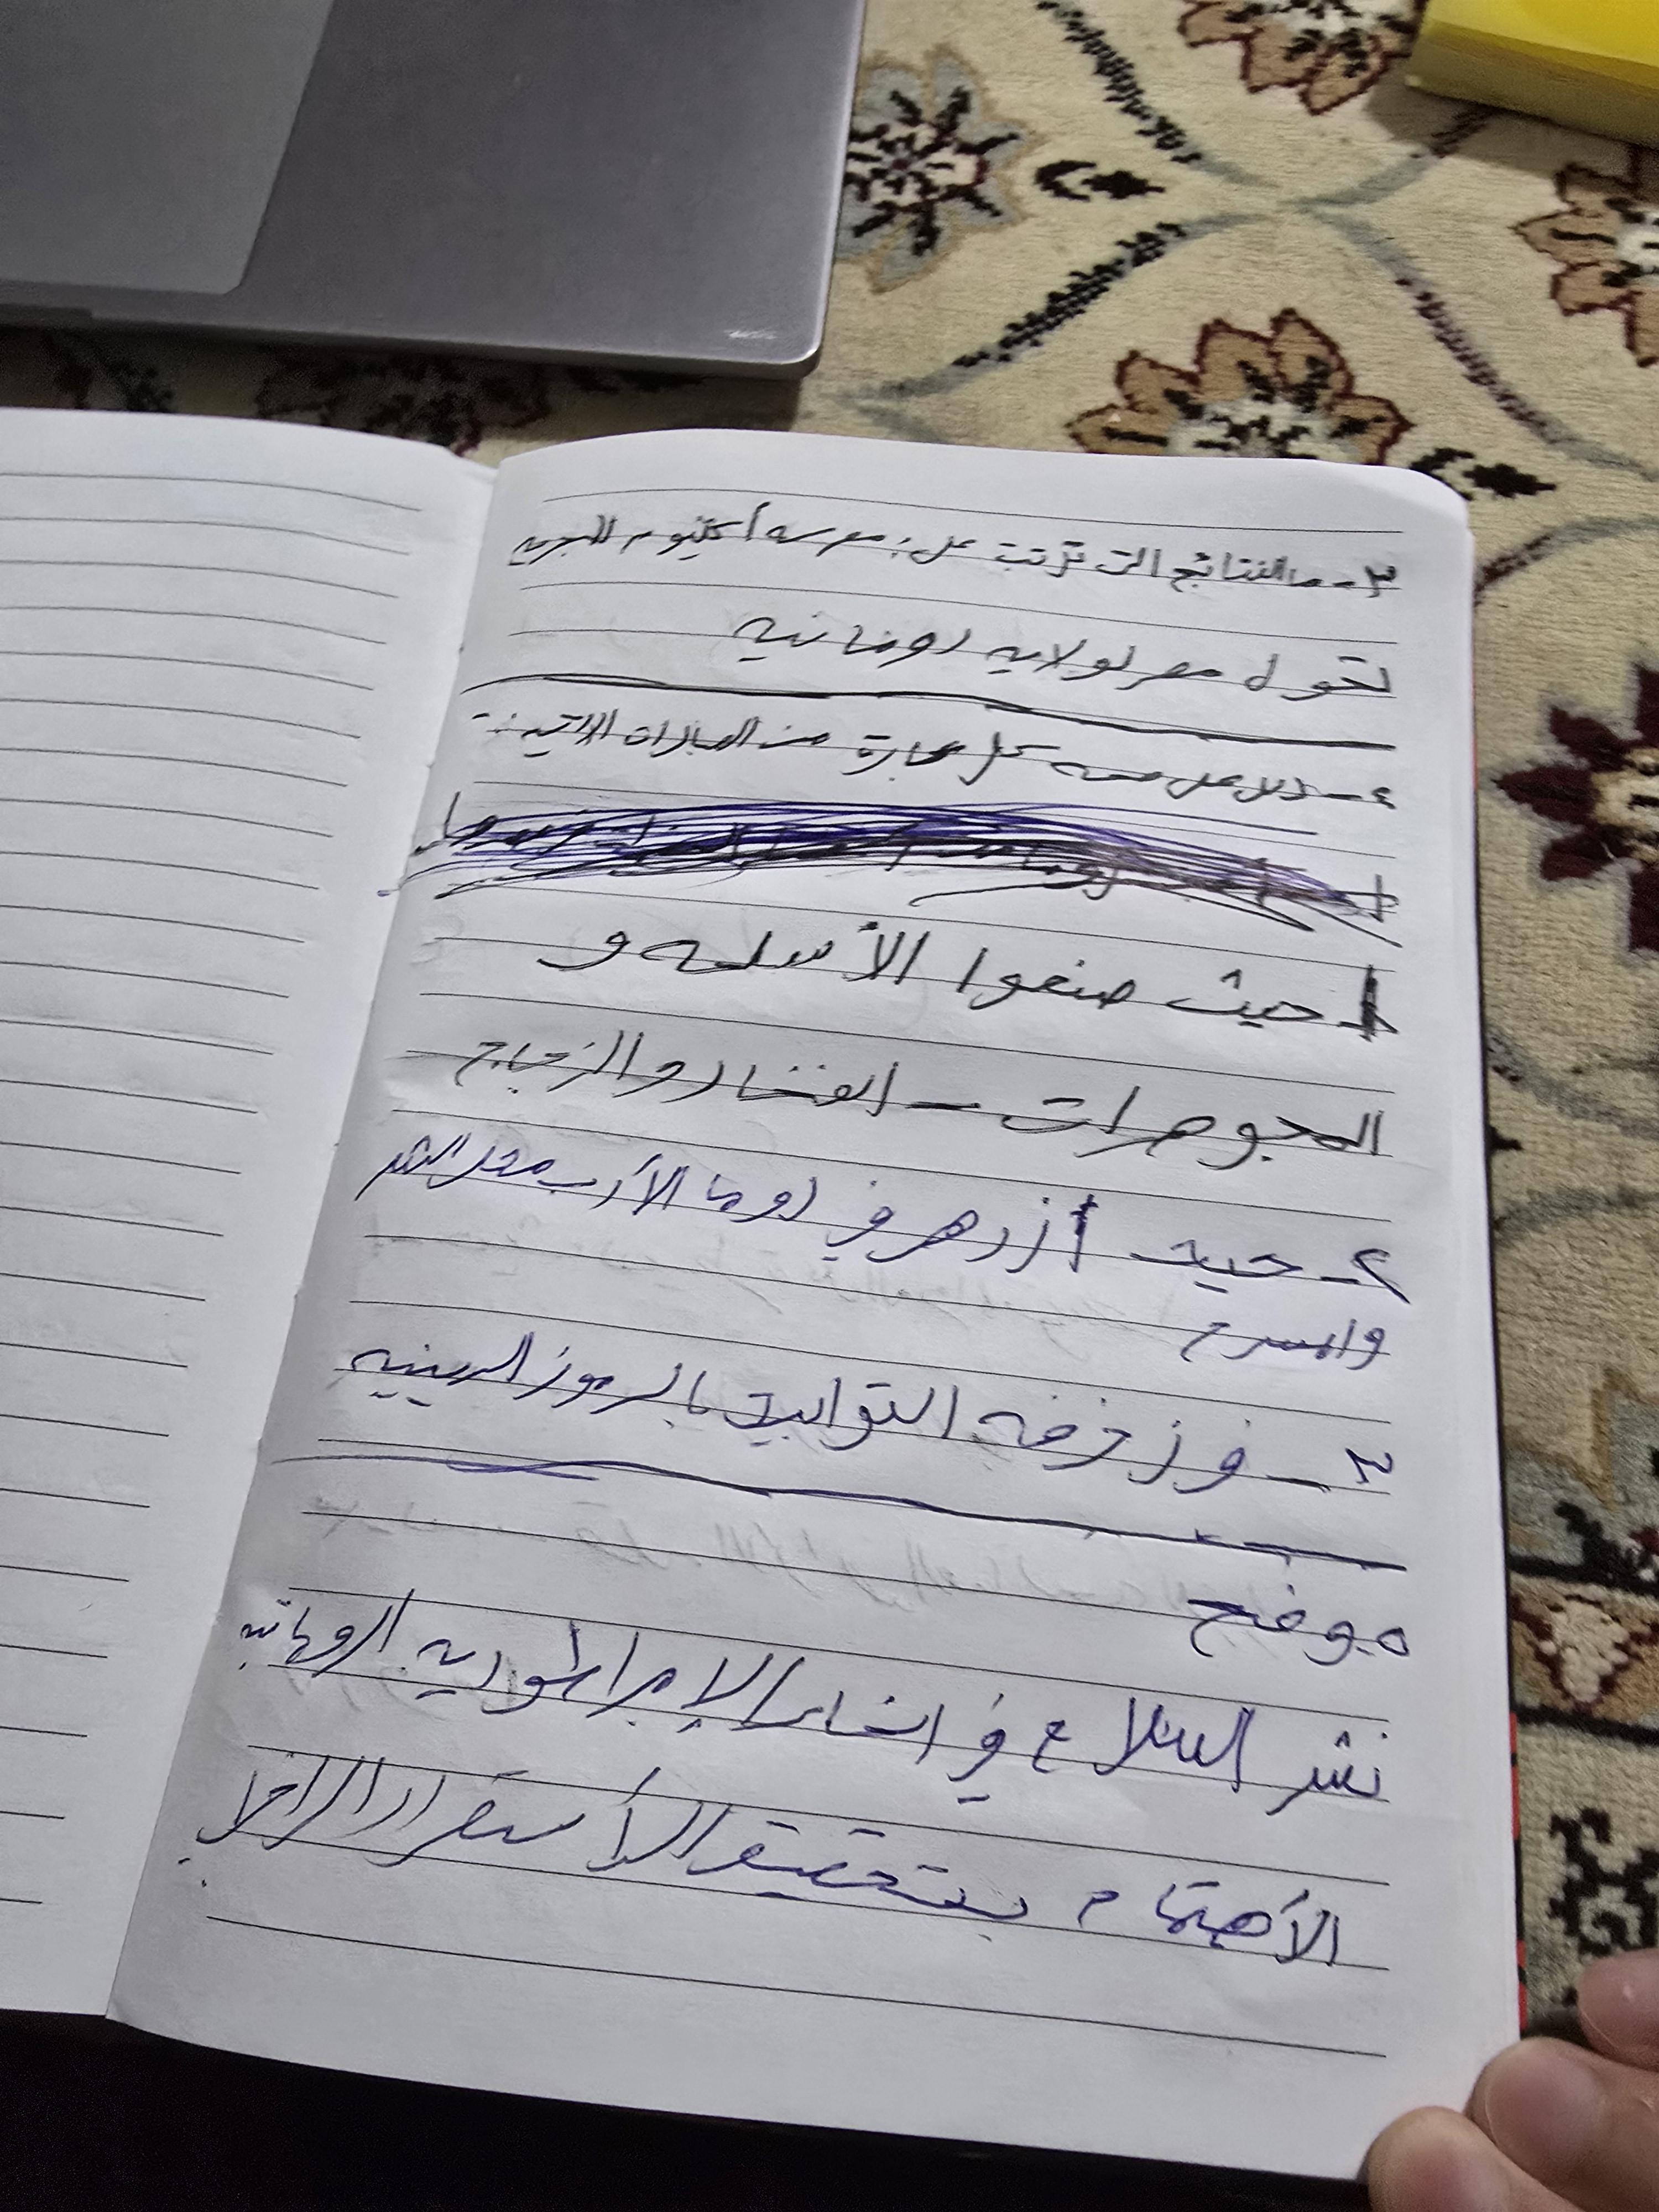 ٣- ما النتائج التي ترتبت على: معركه أكتيوم البحريه
تحول مصر لولايه رومانيه
٤- دلل على صحه كل عبارة من العبارات الاتيه :-
١- حيث صنعوا الأسلحه و
المجوهرات - الفخار والزجاج
٢- حيث أزدهر في روما الأدب مثل الشعر
والمسرح
٣- في زخرفه التوابيت بالرموز الدينيه
٥- وضح
نشر السلام في انحاء الإمبراطوريه الرومانيه
الأهتمام بتحقيق الأستقرار الداخلي